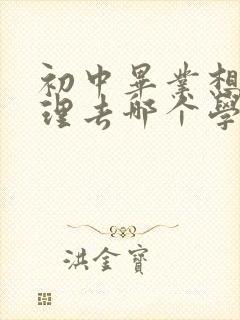 初中畢業想
理去哪个學
洪金寶